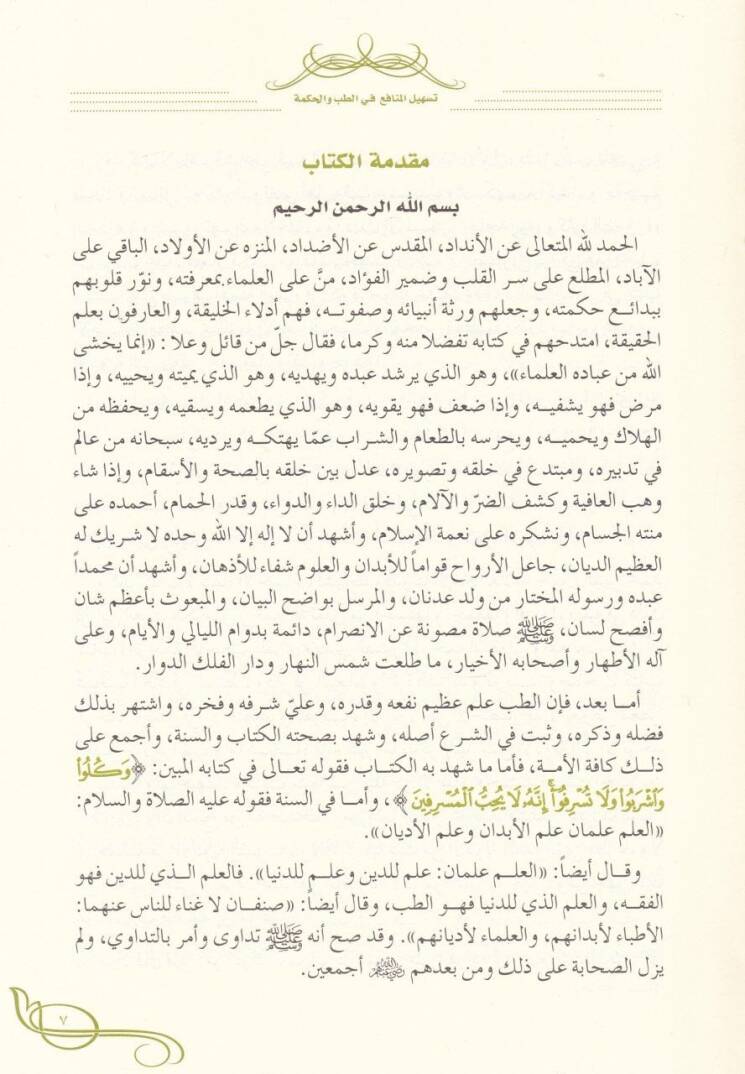 تسهيل المنافع في الطب والحكمة
مقدمة الكتاب
بسم الله الرحمن الرحيم
الحمد لله المتعالى عن الأنداد، المقدس عن الأضداد، المنزه عن الأولاد، الباقي على
الآباد، المطلع على سر القلب وضمير الفؤاد، منَّ على العلماء بمعرفته، ونوّر قلوبهم
ببدائع حكمته، وجعلهم ورثة أنبيائه وصفوته، فهم أدلاء الخليقة، والعارفون بعلم
الحقيقة، امتدحهم في كتابه تفضلا منه وكرما، فقال جلّ من قائل وعلا : «إنما يخشى
الله من عباده العلماء»، وهو الذي يرشد عبده ويهديه، وهو الذي يميته ويحييه، وإذا
مرض فهو يشفيه، وإذا ضعف فهو يقويه، وهو الذي يطعمه ويسقيه، ويحفظه من
الهلاك ويحميه، ويحرسه بالطعام والشراب عمّا يهتكه ويرديه، سبحانه من عالم
في تدبيره، ومبتدع في خلقه وتصويره، عدل بين خلقه بالصحة والأسقام، وإذا شاء
وهب العافية وكشف الضرّ والآلام، وخلق الداء والدواء، وقدر الحمام، أحمده على
منته الجسام، ونشكره على نعمة الإسلام، وأشهد أن لا إله إلا الله وحده لا شريك له
العظيم الديان، جاعل الأرواح قواماً للأبدان والعلوم شفاء للأذهان، وأشهد أن محمداً
عبده ورسوله المختار من ولد عدنان، والمرسل بواضح البيان، والمبعوث بأعظم شان
وأفصح لسان، ﷺ صلاة مصونة عن الانصرام، دائمة بدوام الليالي والأيام، وعلى
آله الأطهار وأصحابه الأخيار، ما طلعت شمس النهار ودار الفلك الدوار.
أما بعد، فإن الطب علم عظيم نفعه وقدره، وعليّ شرفه وفخره، واشتهر بذلك
فضله وذكره، وثبت في الشرع أصله، وشهد بصحته الكتاب والسنة، وأجمع على
ذلك كافة الأمة، فأما ما شهد به الكتاب فقوله تعالى في كتابه المبين: ﴿وَكُلُوا۟
وَٱشْرَبُوا۟ وَلَا تُسْرِفُوٓا۟ ۚ إِنَّهُۥ لَا يُحِبُّ ٱلْمُسْرِفِينَ﴾، وأما في السنة فقوله عليه الصلاة والسلام:
«العلم علمان علم الأبدان وعلم الأديان».
وقال أيضاً: «العلم علمان: علم للدين وعلم للدنيا». فالعلم الذي للدين فهو
الفقه، والعلم الذي للدنيا فهو الطب، وقال أيضاً: «صنفان لا غناء للناس عنهما:
الأطباء لأبدانهم، والعلماء لأديانهم». وقد صح أنه ﷺ تداوى وأمر بالتداوي، ولم
يزل الصحابة على ذلك ومن بعدهم رضي الله عنهم أجمعين.
٧